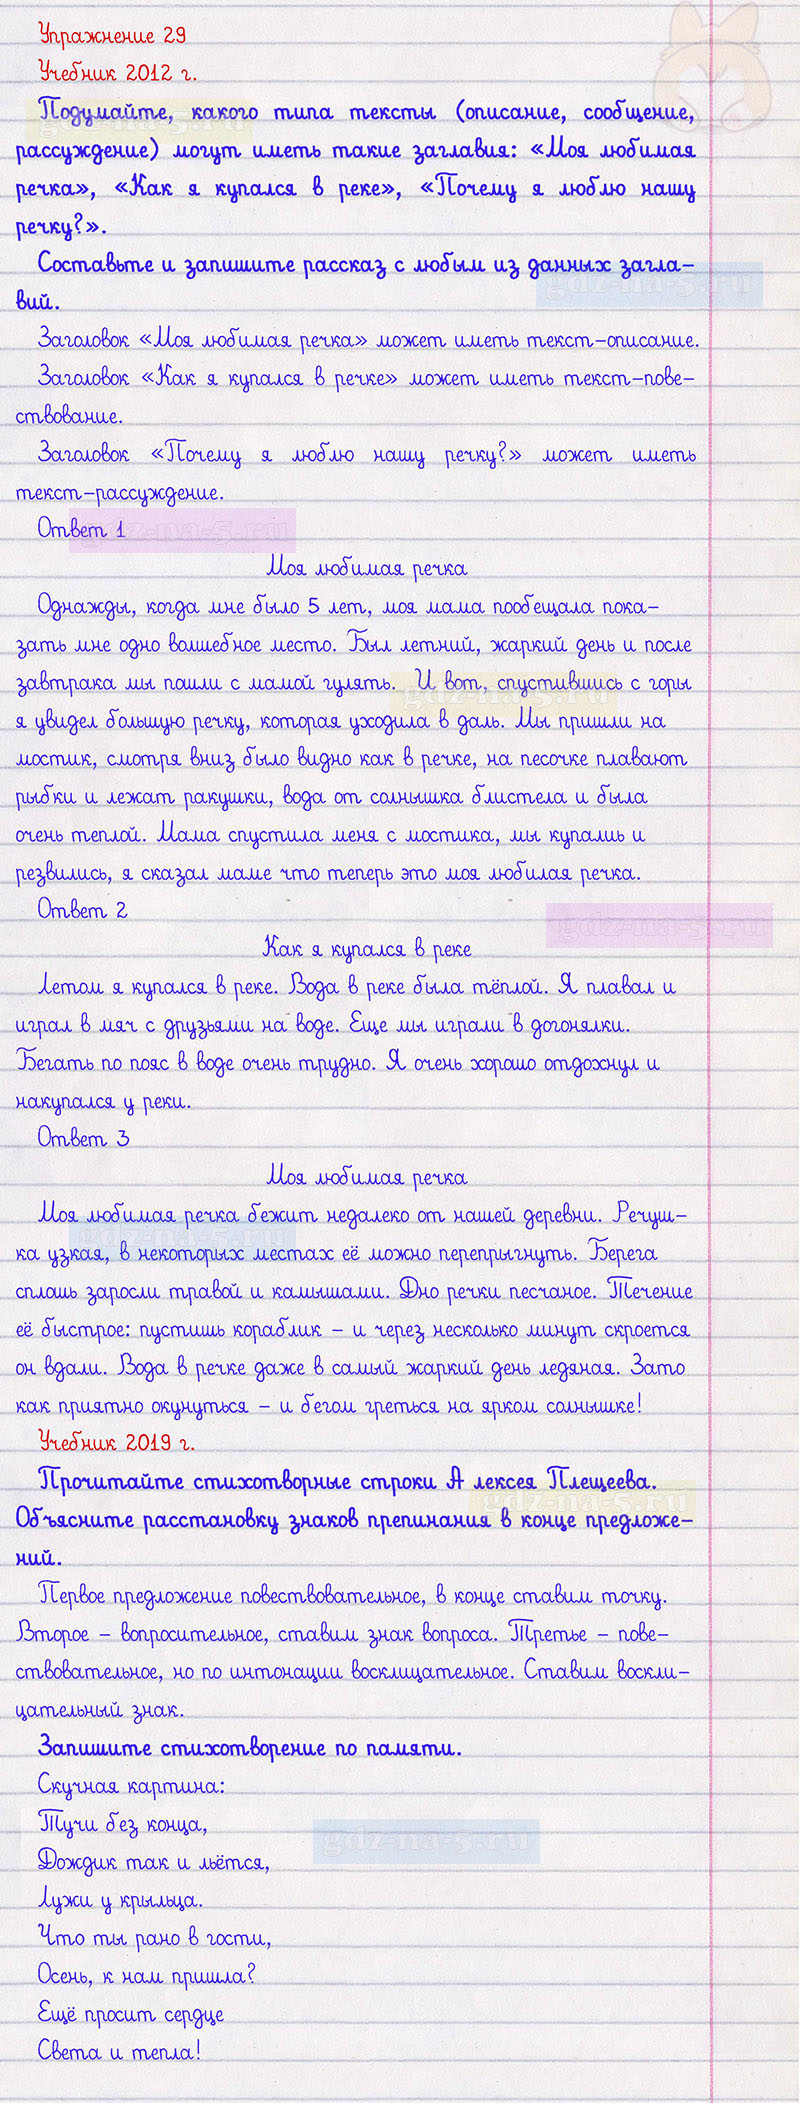 Упражнение 29
Учебник 2012 г.
Подумайте, какого типа тексты (описание, сообщение,
gdz-na-5.ru
рассуждение) могут иметь такие заглавия: «Моя любимая
речка», «Как я купался в реке», «Почему я люблю нашу
речку?».
Составьте и запишите рассказ с любым из данных загла-
gdz-na-5.ru
вий.
Заголовок «Моя любимая речка» может иметь текст-описание.
Заголовок «Как я купался в речке» может иметь текст-пове-
ствование.
Заголовок «Почему я люблю нашу речку?» может иметь
текст-рассуждение.
Ответ 1
gdz-na-5.ru
Моя любимая речка
Однажды, когда мне было 5 лет, моя мама пообещала пока-
зать мне одно волшебное место. Был летний, жаркий день и после
завтрака мы пошли с мамой гулять. И вот, спустившись с горы
gdz-na-5.ru
я увидел большую речку, которая уходила в даль. Мы пришли на
мостик, смотря вниз было видно как в речке, на песочке плавают
рыбки и лежат ракушки, вода от солнышка блистела и была
очень теплой. Мама спустила меня с мостика, мы купалиь и
резвились, я сказал маме что теперь это моя любилая речка.
Ответ 2
gdz-na-5.ru
Как я купался в реке
Летом я купался в реке. Вода в реке была тёплой. Я плавал и
играл в мяч с друзьями на воде. Еще мы играли в догонялки.
Бегать по пояс в воде очень трудно. Я очень хорошо отдохнул и
накупался у реки.
Ответ 3
Моя любимая речка
Моя любимая речка бежит недалеко от нашей деревни. Речуш-
gdz-na-5.ru
ка узкая, в некоторых местах её можно перепрыгнуть. Берега
сплошь заросли травой и камышами. Дно речки песчаное. Течение
её быстрое: пустишь кораблик – и через несколько минут скроется
он вдали. Вода в речке даже в самый жаркий день ледяная. Зато
как приятно окунуться – и бегом греться на ярком солнышке!
Учебник 2019 г.
Прочитайте стихотворные строки А лексея Плещеева.
gdz-na-5.ru
Объясните расстановку знаков препинания в конце предложе-
ний.
Первое предложение повествовательное, в конце ставим точку.
Второе – вопросительное, ставим знак вопроса. Третье – пове-
ствовательное, но по интонации восклицательное. Ставим воскли-
цательный знак.
Запишите стихотворение по памяти.
Скучная картина:
Тучи без конца,
gdz-na-5.ru
Дождик так и льётся,
Лужи у крыльца.
Что ты рано в гости,
Осень, к нам пришла?
Ещё просит сердце
Света и тепла!